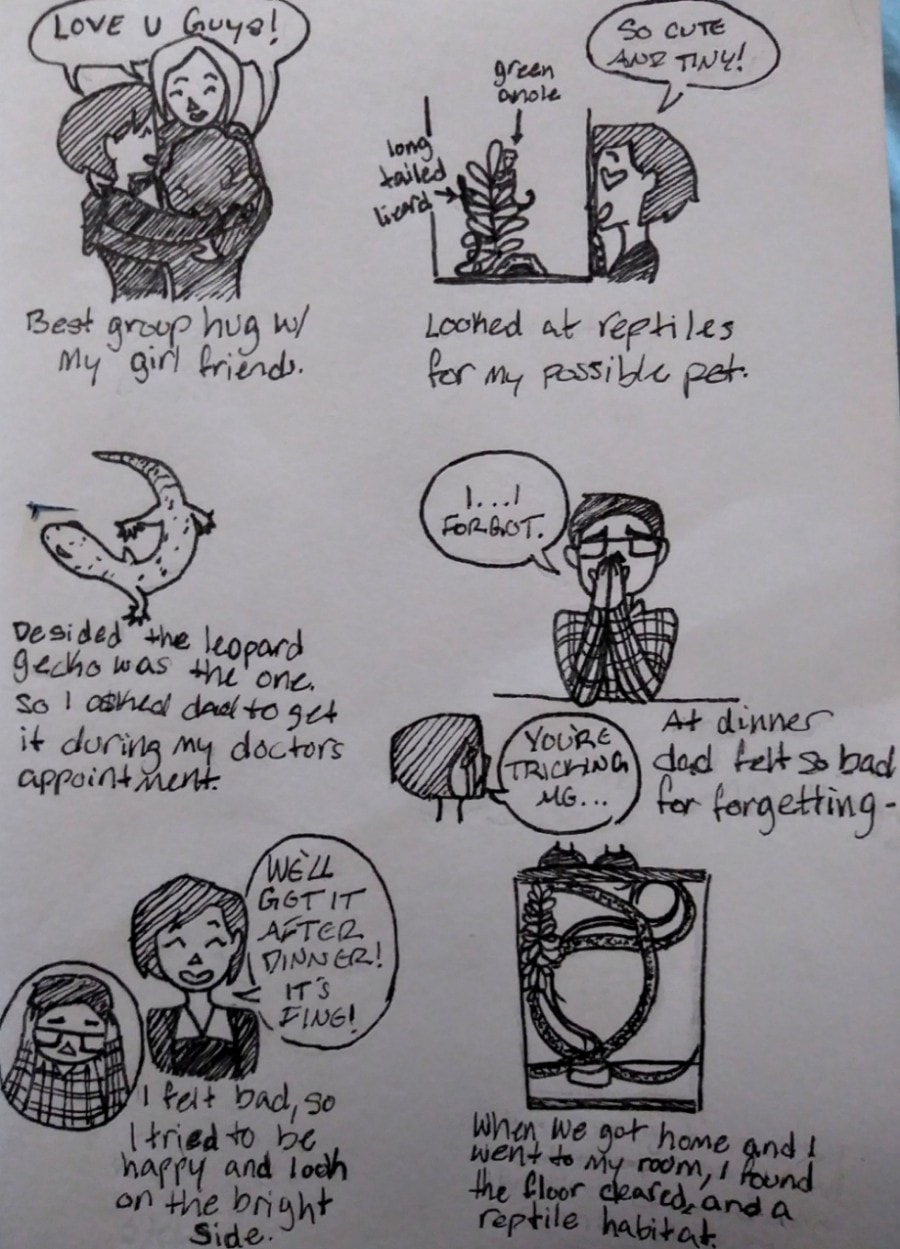 LOVE U GUYS!
Best group hug w/
My girl friends.
SO CUTE
AND TINY!
green
anole
long
tailed
lizard
Looked at reptiles
for my possible pet.
Desided the leopard
gecko was the one.
So I asked dad to get
it during my doctors
appointment.
I...I
FORGOT.
YOU'RE
TRICKING
ME...
At dinner
dad felt so bad
for forgetting-
WE'LL
GET IT
AFTER
DINNER!
IT'S
FINE!
I felt bad, so
I tried to be
happy and look
on the bright
side.
When we got home and I
went to my room, I found
the floor cleared, and a
reptile habitat.